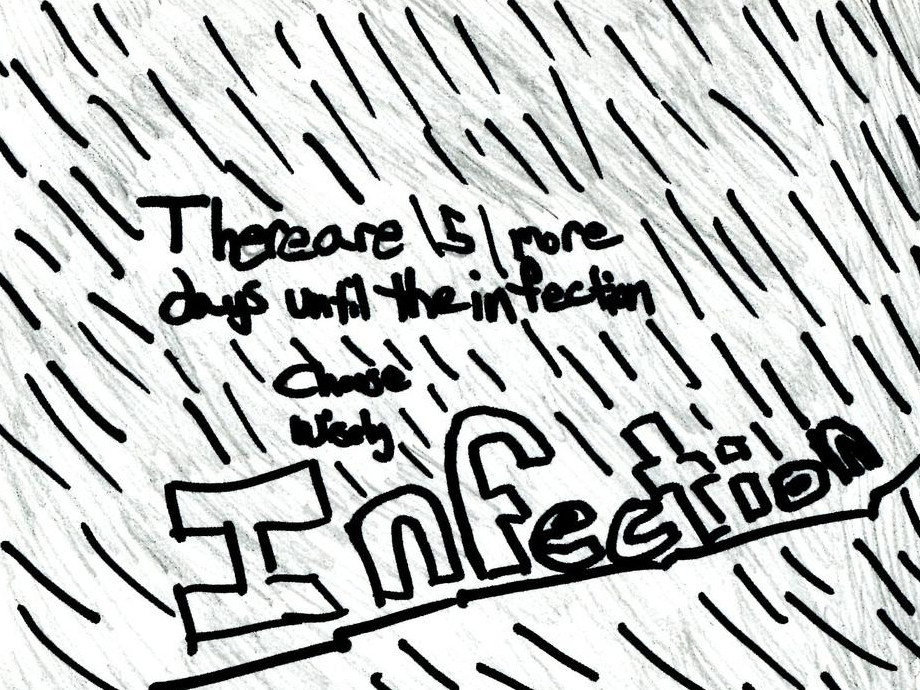 There are 5 more
days until the infection
Choose
Wisely
Infection